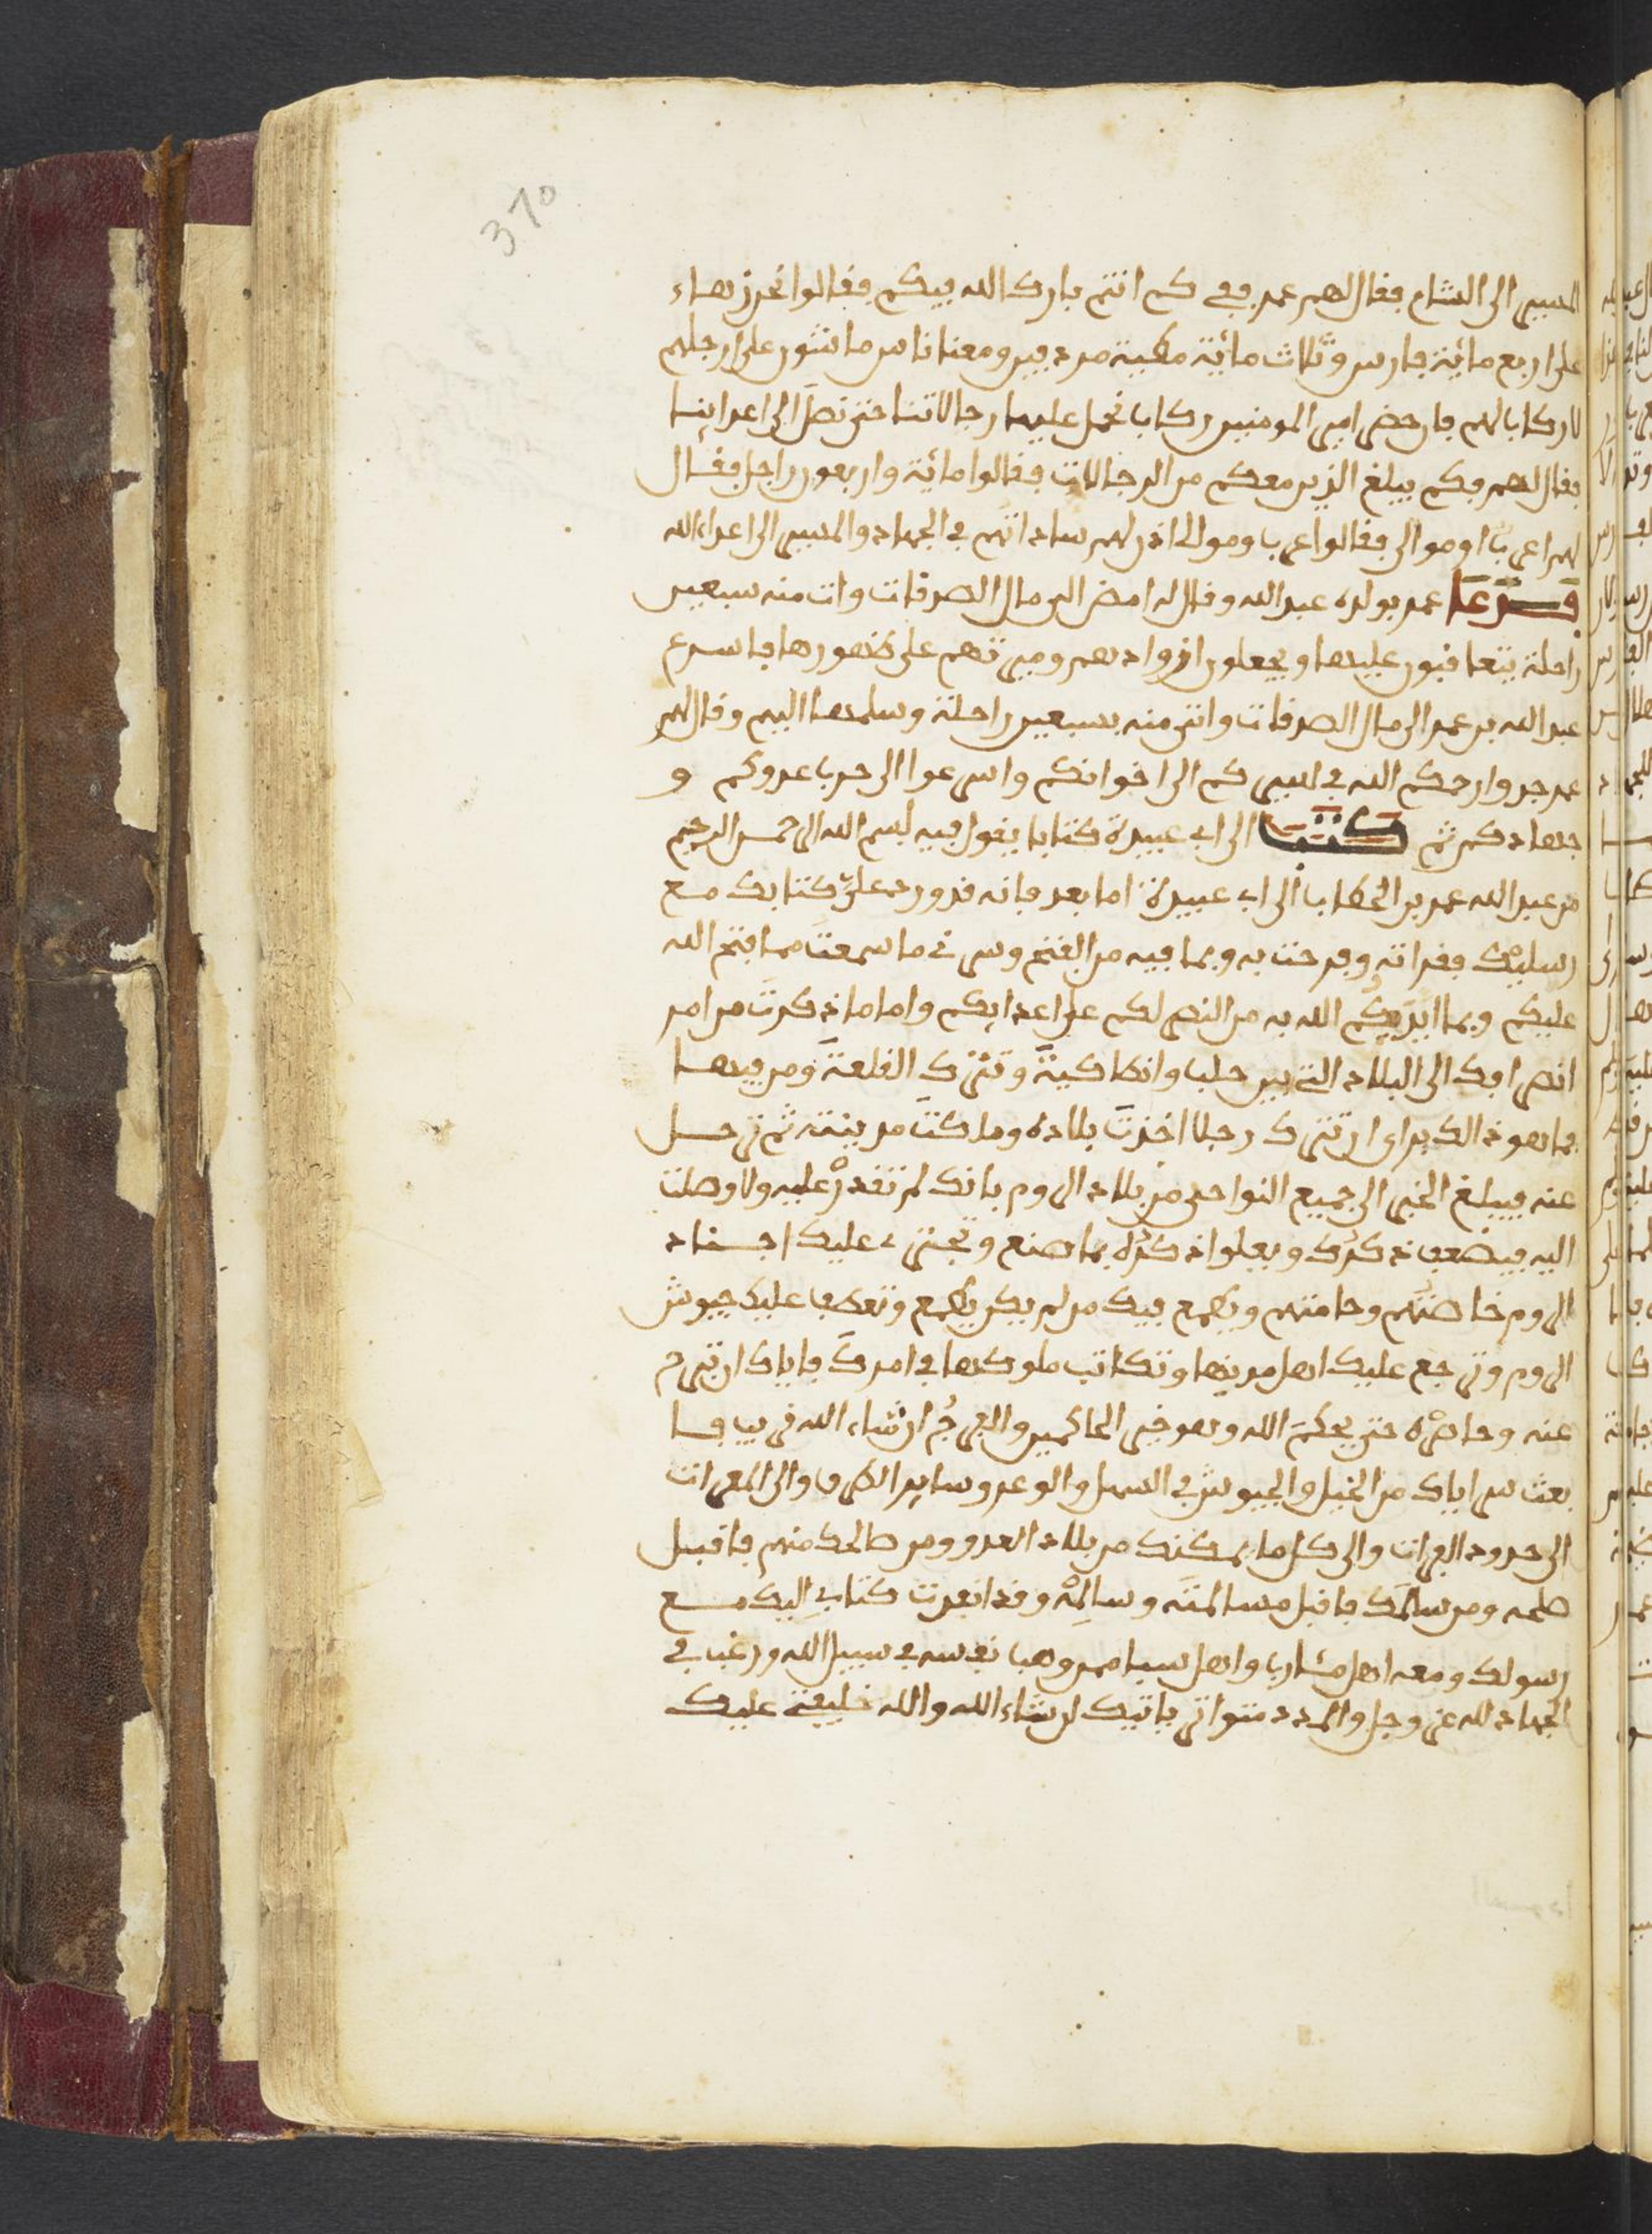 370
المسير الى الشام فقال لهم عمر ففي كم انتم بارك الله فيكم فقالوا نحن زهاء
على اربع مائة فارس وثلاث مائة مطية مردفين ومعنا ناس ماشون على ارجلهم
لا ركاب لهم فان حضى امير المومنين ركابا نحمل عليها رجالاتنا حتى نصل الى اعداينا
فقال لهم فكم يبلغ الذين معكم من الرجالات فقالوا مائة واربعون راجل فقال
لهم اعربا او موالى فقالوا عربا وموالى اذن لهم ساداتهم في الجهاد والمسير الى اعداء الله
فدعا عمر بولده عبد الله وقال له امض الى مال الصدقات وات منه سبعين
راحلة يتعاقبون عليها ويجعلون ازوادهم وميرتهم على ظهورها فاسرع
عبد الله بن عمر الى مال الصدقات واتى منه بسبعين راحلة وسلمها اليهم وقال لهم
عمر جدوا رحمكم الله في السير كم الى اخوانكم واسرعوا الى حرب عدوكم و
جهادكم ثم كتب الى ابي عبيدة كتابا يقول فيه بسم الله الرحمن الرحيم
من عبد الله عمر بن الخطاب الى ابي عبيدة اما بعد فانه قد ورد علي كتابك مع
رسليك فقراته وفرحت به وبما فيه من الفتح وسرني ما سمعت مما فتح الله
عليكم وبما ايديكم الله به من النصر لكم على اعدايكم واما ما ذكرت من امر
انصرافك الى البلاد التي بين حلب وانطاكية وتترك القلعة ومن فيها
فما هو ذالك براى ان تترك رجلا اخذت بلاده وملكت مدينته ثم ترحل
عنه فيبلغ الخبر الى جميع النواحى من بلاد الروم بانك لم تقدر عليه ولا وصلت
اليه فيضعف ذكرك ويعلوا ذكره بما صنع وتجترء عليك اجناد
الروم خاصتهم وعامتهم ويطمع فيك من لم يكن يطمع وتعطف عليك جيوش
الروم وترجع عليك اهل مدينها وتكاتب ملوكها في امرك فاياك ان تبرح
عنه وحاصره حتى يحكم الله وهو خير الحاكمين والفرج ان شاء الله قريب فا
بعث سراياك من الخيل والجيوش في السهل والوعر وساير الطرف والى الفرات
الى حدود العراق والى كل ما يمكنك من بلاد العدو ومن صالحك منهم فاقبل
صلحه ومن سالمك فاقبل مسالمته وسالمه وقد انفذت كتابي اليك مع
رسولك ومعه اهل مشارب واهل سبا ممن وهب نفسه في سبيل الله ورغب في
الجهاد لله عز وجل والمدد متواتر ياتيك ان شاء الله والله خليفتي عليك